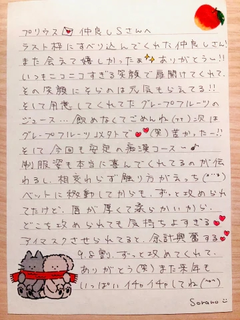 プリウス💌 仲良しSさんへ
ラスト枠にすべり込んでくれた仲良しさん!
また会えて嬉しかったぁ✨ありがとうー!!
いつもニコニコすぎる笑顔で扉開けてくれて、
その笑顔にそらのは元気もらえてる!!
そして用意してくれてたグレープフルーツの
ジュース…飲めなくてごめんね(++)次は
グレープフルーツリストで❤(笑)甘かったー!!
そして今回も安定の痴漢コース〜♪
制服姿も本当に喜んでくれてるのが伝
わるし、相変わらず触り方がえっち(˘˘)
ベットに移動してからも、ずっと攻められ
てたけど、唇が厚くて柔らかいから、
どこを攻められても気持ちよすぎる❤
アイマスクさせられてると、余計興奮する❤
9.8割、ずっと攻めてくれて、
ありがとう(笑)また来年も
いっぱいイチャイチャしてね(˘˘)
Sorano☺